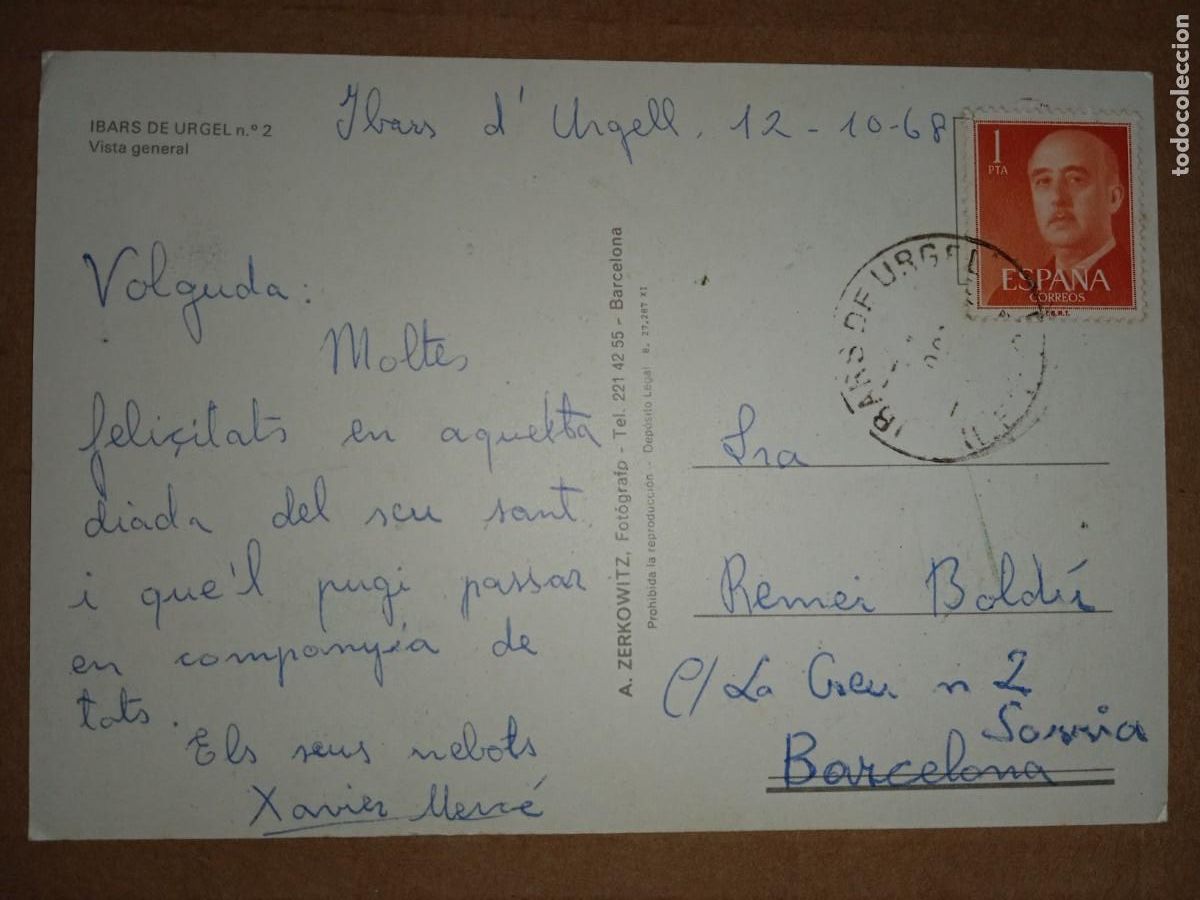 IBARS DE URGEL n.º 2
Vista general
Ibars d'Urgell, 12-10-68
Volguda:
Moltes
feliçitats en aquesta
diada del seu sant
i que'l pugi passar
en companyia de
tots.
Els seus nebots
Xavier Mercé
A. ZERKOWITZ, Fotógrafo - Tel. 221 42 55 - Barcelona
Prohibida la reproducción - Depósito Legal B. 27.287 XI
1
PTA
ESPAÑA
CORREOS
F.N.M.T.
IBARS DE URGEL
Sra
Remei Boldú
C/ La Creu n 2
Sarria
Barcelona
todocoleccion